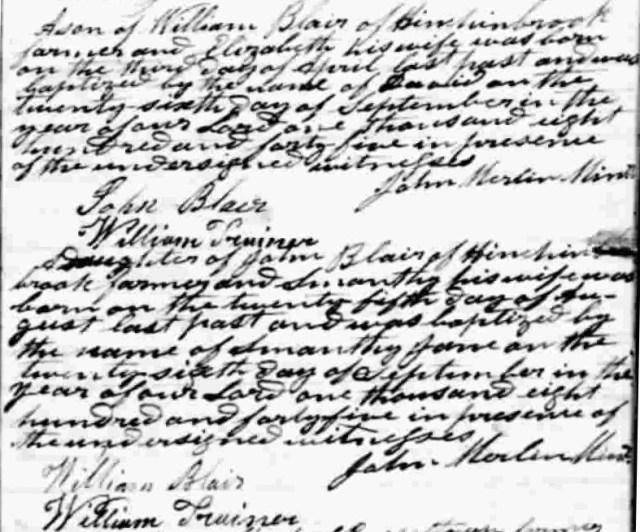 A son of William Blair of Hinchinbrook
farmer and Elizabeth his wife was born
on the third day of April last past and was
baptized by the name of David on the
twenty-sixth day of September in the
year of our Lord one thousand eight
hundred and forty-five in presence
of the undersigned witnesses
John Merlin Minr
John Blair
William Trainer
Daughter of John Blair of Hinchin-
brook farmer and Smanthy his wife was
born on the twenty fifth day of Au-
gust last past and was baptized by
the name of Smanthy Jane on the
twenty-sixth day of September in the
year of our Lord one thousand eight
hundred and forty-five in presence of
the undersigned witnesses
John Merlin Minr
William Blair
William Trainer
farmer